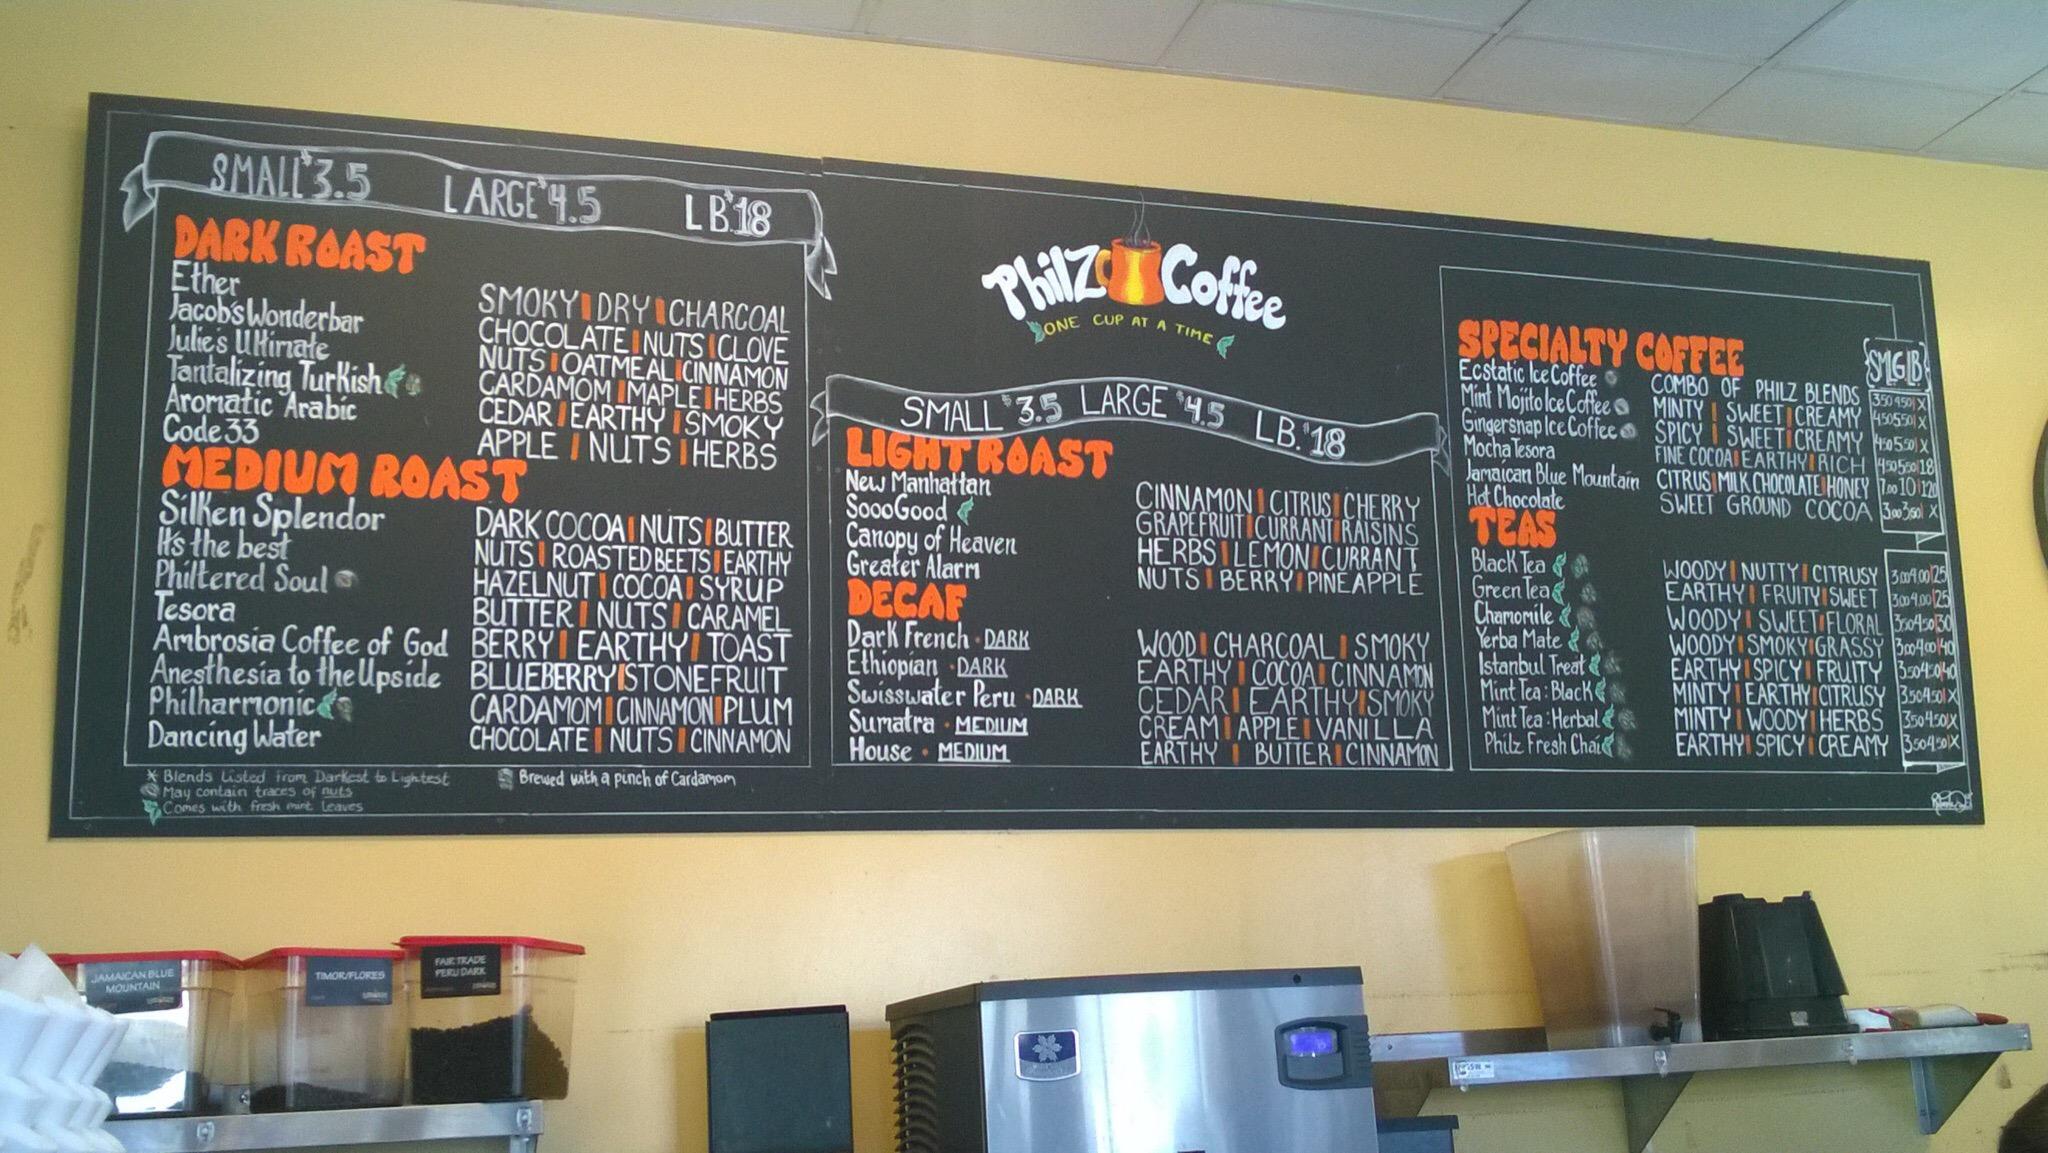 SMALL $3.5 LARGE $4.5 LB. $18
DARK ROAST
Ether SMOKY | DRY | CHARCOAL
Jacob's Wonderbar CHOCOLATE | NUTS | CLOVE
Julie's Ultimate NUTS | OATMEAL | CINNAMON
Tantalizing Turkish CARDAMOM | MAPLE | HERBS
Aromatic Arabic CEDAR | EARTHY | SMOKY
Code 33 APPLE | NUTS | HERBS
MEDIUM ROAST
Silken Splendor DARK COCOA | NUTS | BUTTER
It's the best NUTS | ROASTED BEETS | EARTHY
Philtered Soul HAZELNUT | COCOA | SYRUP
Tesora BUTTER | NUTS | CARAMEL
Ambrosia Coffee of God BERRY | EARTHY | TOAST
Anesthesia to the Upside BLUEBERRY | STONEFRUIT
Philharmonic CARDAMOM | CINNAMON | PLUM
Dancing Water CHOCOLATE | NUTS | CINNAMON
* Blends Listed from Darkest to Lightest
May contain traces of nuts
Comes with fresh mint leaves
Brewed with a pinch of Cardamom
Philz Coffee
ONE CUP AT A TIME
SMALL $3.5 LARGE $4.5 LB. $18
LIGHT ROAST
New Manhattan CINNAMON | CITRUS | CHERRY
SoooGood GRAPEFRUIT | CURRANT | RAISINS
Canopy of Heaven HERBS | LEMON | CURRANT
Greater Alarm NUTS | BERRY | PINEAPPLE
DECAF
Dark French · DARK WOOD | CHARCOAL | SMOKY
Ethiopian · DARK EARTHY | COCOA | CINNAMON
Swisswater Peru · DARK CEDAR | EARTHY | SMOKY
Sumatra · MEDIUM CREAM | APPLE | VANILLA
House · MEDIUM EARTHY | BUTTER | CINNAMON
SPECIALTY COFFEE SM LG LB
Ecstatic Ice Coffee COMBO OF PHILZ BLENDS 3.50 4.50 | X
Mint Mojito Ice Coffee MINTY | SWEET | CREAMY 4.50 5.50 | X
Gingersnap Ice Coffee SPICY | SWEET | CREAMY 4.50 5.50 | X
Mocha Tesora FINE COCOA | EARTHY | RICH 4.50 5.50 | 18
Jamaican Blue Mountain CITRUS | MILK CHOCOLATE | HONEY 7.00 10 | 120
Hot Chocolate SWEET GROUND COCOA 3.00 3.50 | X
TEAS
Black Tea WOODY | NUTTY | CITRUSY 3.00 4.00 | 25
Green Tea EARTHY | FRUITY | SWEET 3.00 4.00 | 25
Chamomile WOODY | SWEET | FLORAL 3.50 4.50 | 30
Yerba Mate WOODY | SMOKY | GRASSY 3.00 4.00 | 40
Istanbul Treat EARTHY | SPICY | FRUITY 3.50 4.50 | 40
Mint Tea: Black MINTY | EARTHY | CITRUSY 3.50 4.50 | X
Mint Tea: Herbal MINTY | WOODY | HERBS 3.50 4.50 | X
Philz Fresh Chai EARTHY | SPICY | CREAMY 3.50 4.50 | X
JAMAICAN BLUE
MOUNTAIN
TIMOR/FLORES
FAIR TRADE
PERU DARK